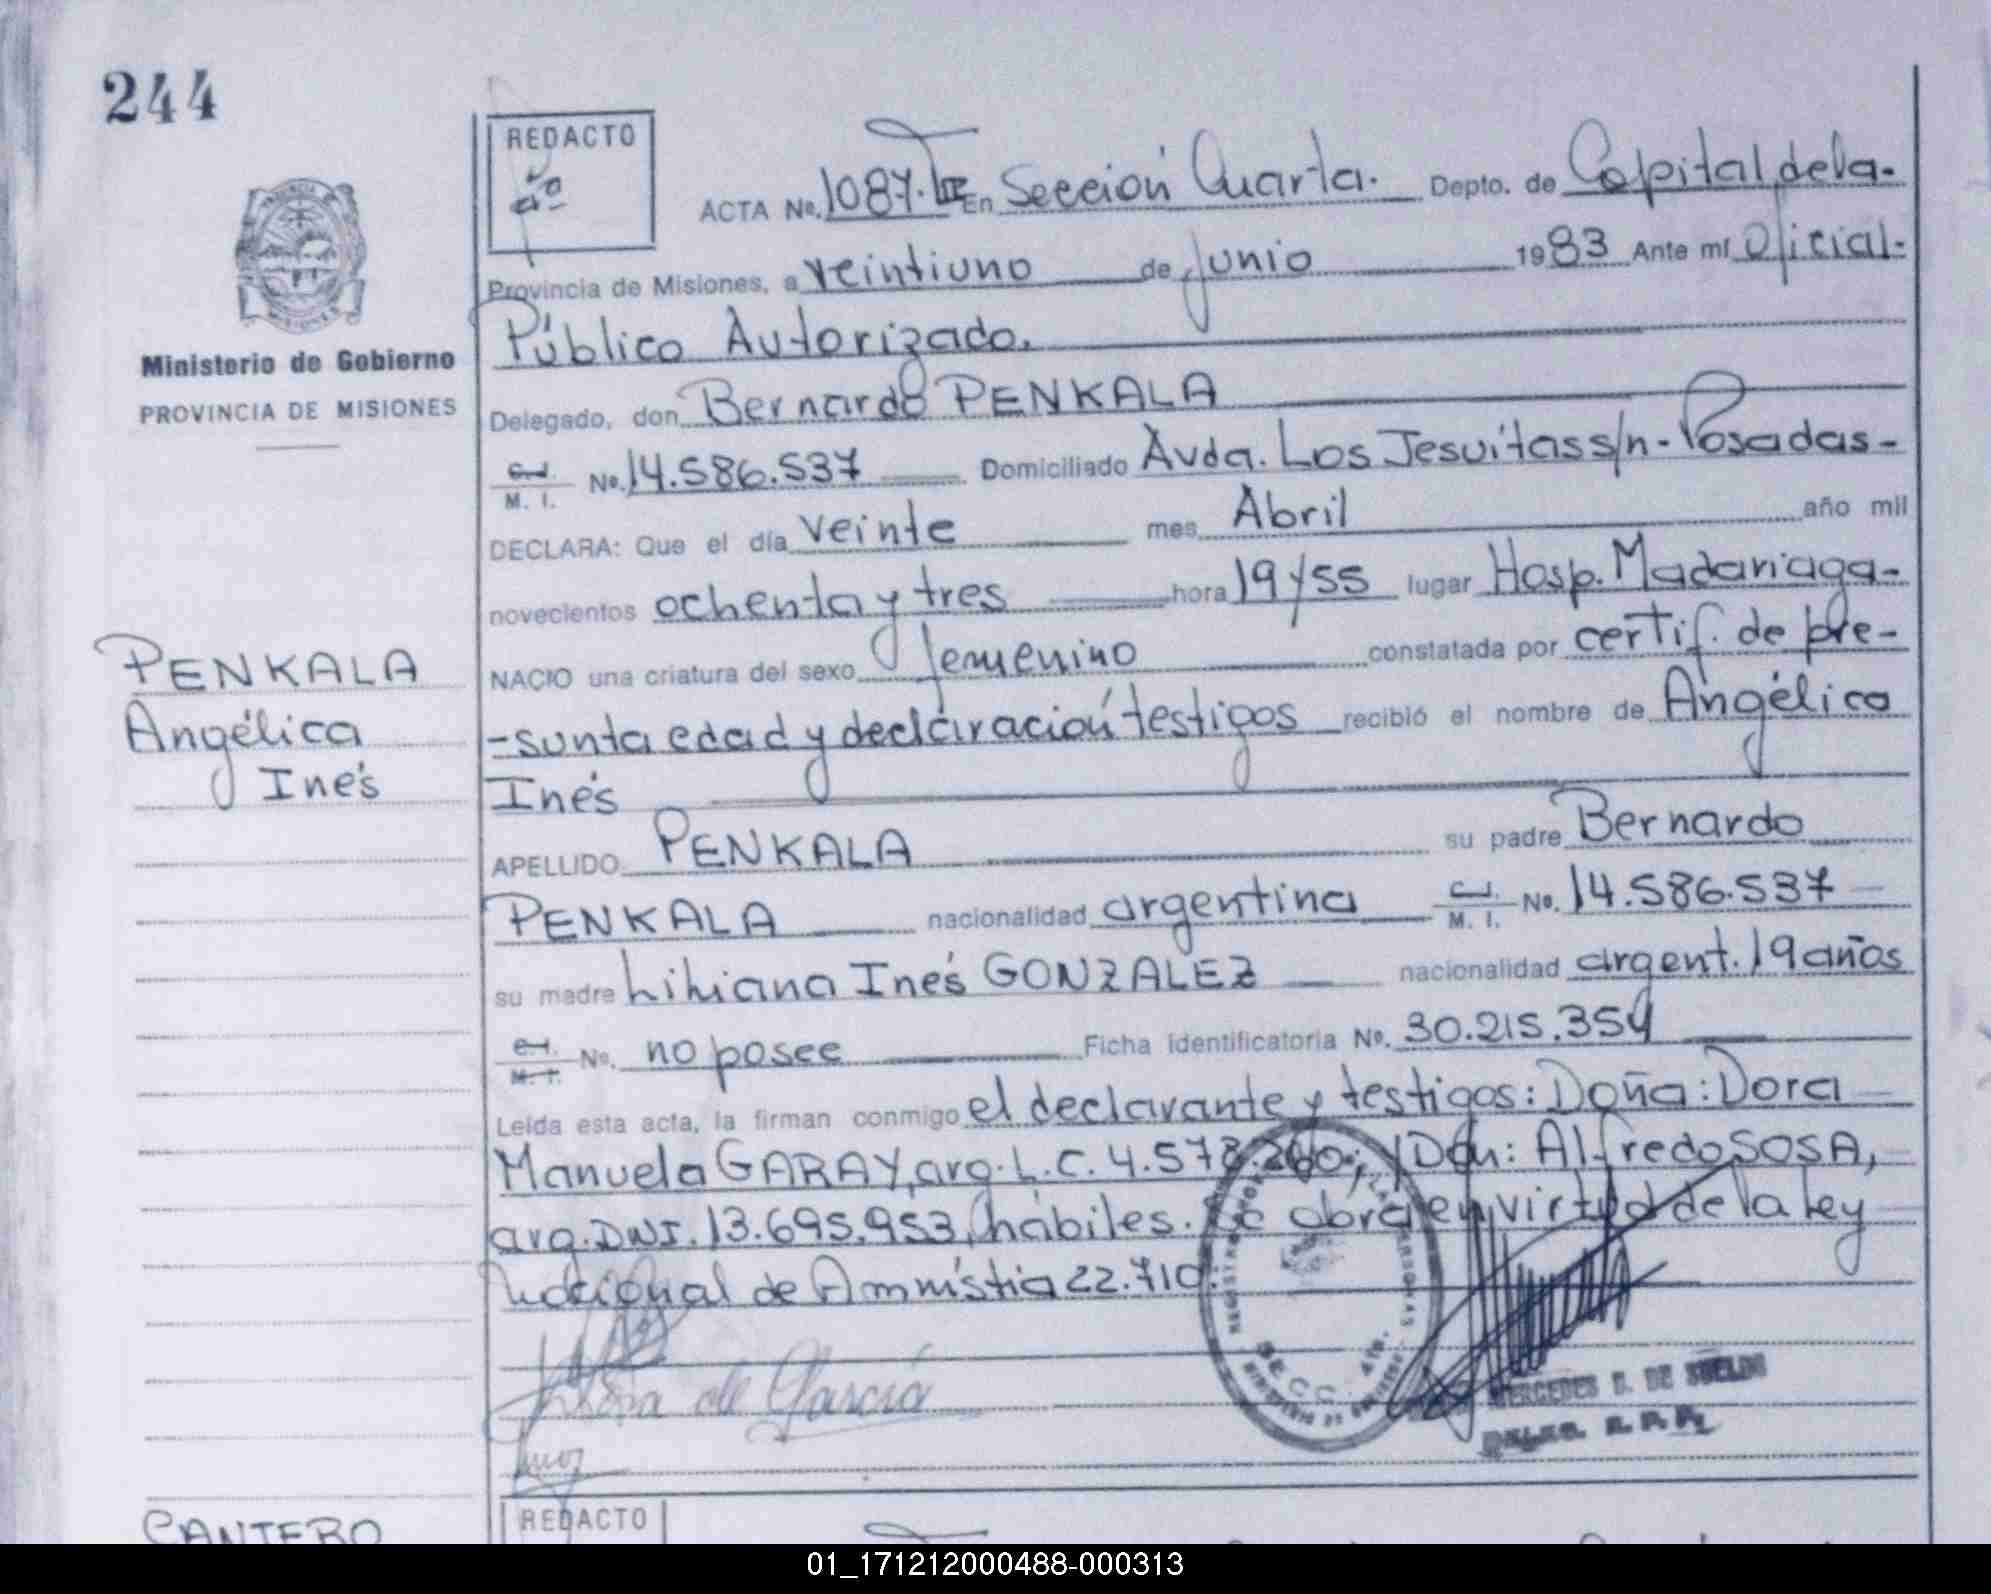 244
REDACTO
ACTA No. 1087. III En Sección Cuarta. Depto. de Capital de la
Provincia de Misiones, a veintiuno de Junio 1983 Ante mí Oficial
Público Autorizado.
Ministerio de Gobierno
PROVINCIA DE MISIONES
Delegado, don Bernardo PENKALA
C.I. M. I. No. 14.586.537 Domiciliado Avda. Los Jesuitas s/n - Posadas -
DECLARA: Que el día veinte mes Abril año mil
novecientos ochenta y tres hora 19 y 55 lugar Hosp. Madariaga -
NACIO una criatura del sexo femenino constatada por certif. de pre-
-sunta edad y declaración testigos recibió el nombre de Angélica
Inés
PENKALA
Angélica
Inés
APELLIDO PENKALA su padre Bernardo
PENKALA nacionalidad argentina C.I. M. I. No. 14.586.537
su madre Liliana Inés GONZALEZ nacionalidad argent. 19 años
C.I. M. I. No. no posee Ficha identificatoria No. 30.215.354
Leída esta acta, la firman conmigo el declarante y testigos: Doña: Dora
Manuela GARAY, arg. L.C. 4.578.260; y Don: Alfredo SOSA,
arg. DNI. 13.695.953, hábiles. Se obra en virtud de la Ley
Nacional de Amnistía 22.710.
de García
MERCEDES B. DE SUELDO
DELEG. R. P. P.
SECC. 4ta.
CANTERO
REDACTO
01_171212000488-000313